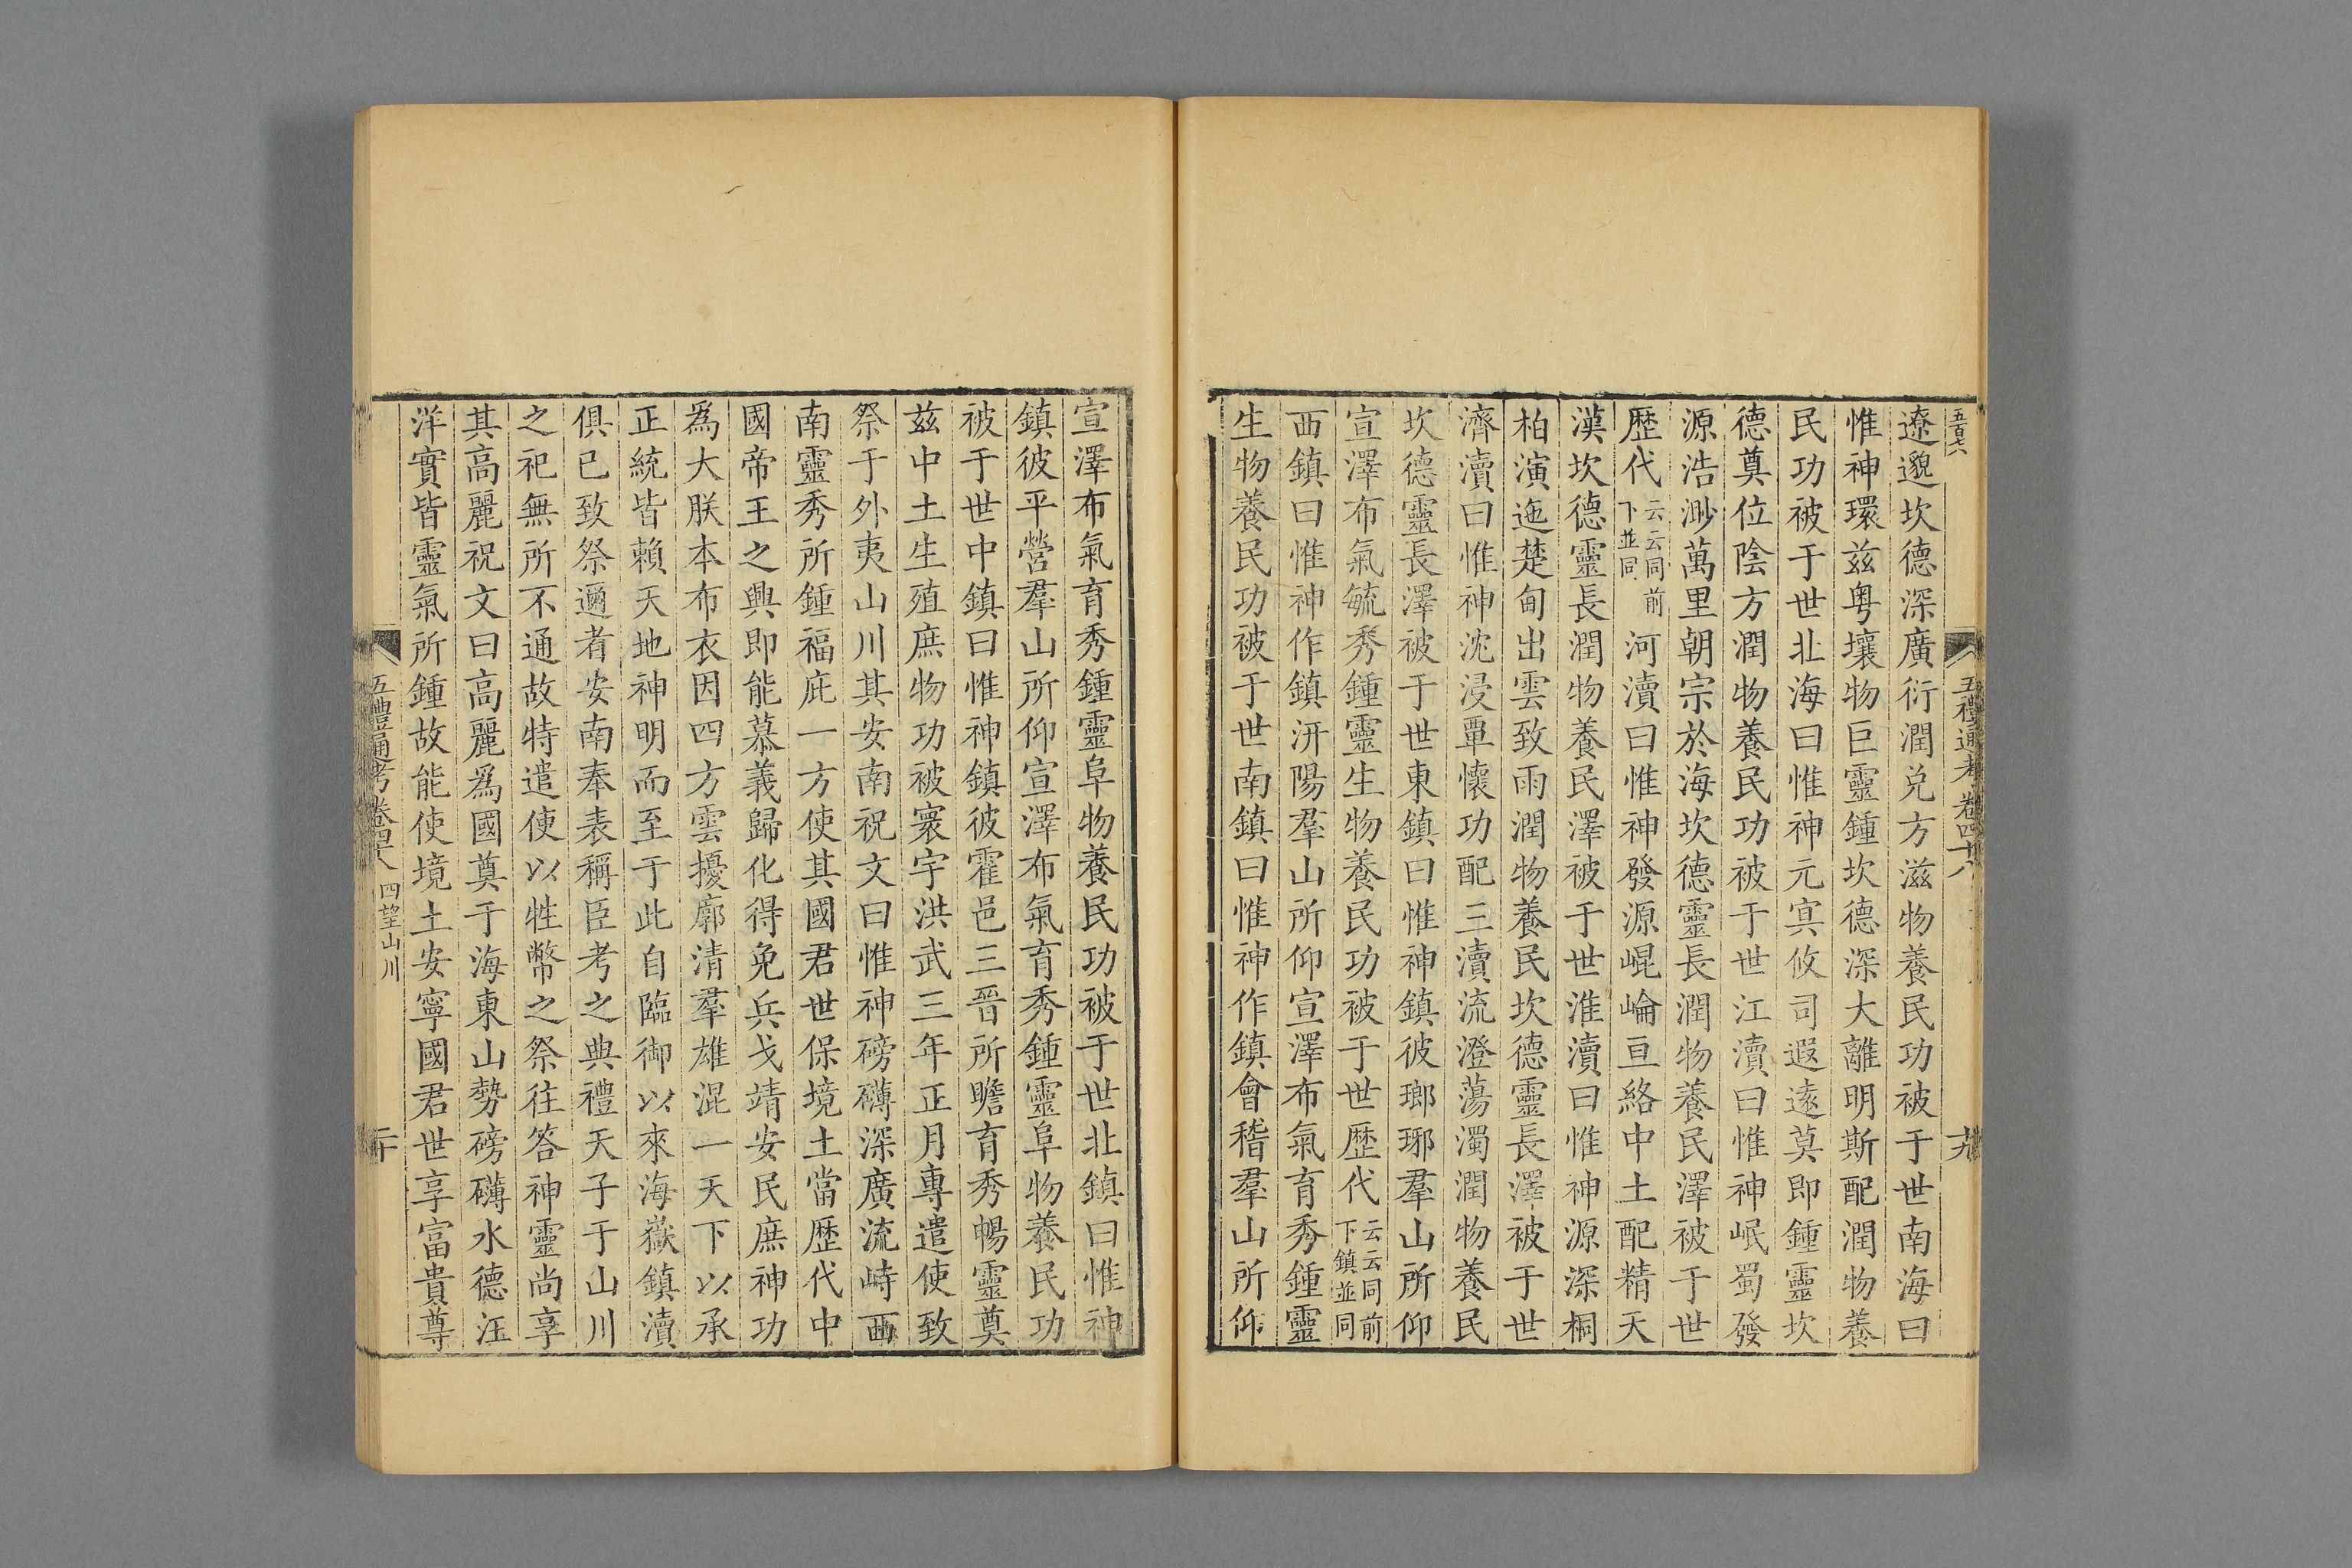 遼邈坎德深廣衍潤兑方滋物養民功被于世南海曰
惟神環兹粤壤物巨靈鍾坎德深大離明斯配潤物養
民功被于世北海曰惟神元冥攸司遐遠莫即鍾靈坎
德奠位陰方潤物養民功被于世江瀆曰惟神岷蜀發
源浩渺萬里朝宗於海坎德靈長潤物養民澤被于世
歷代云云同前下並同河瀆曰惟神發源崐崙亘絡中土配精天
漢坎德靈長潤物養民澤被于世淮瀆曰惟神源深桐
柏演迤楚甸出雲致雨潤物養民坎德靈長澤被于世
濟瀆曰惟神沇浸覃懷功配三瀆流澄蕩濁潤物養民
坎德靈長澤被于世東鎮曰惟神鎮彼瑯琊羣山所仰
宣澤布氣毓秀鍾靈生物養民功被于世歷代云云同前下鎮並同
西鎮曰惟神作鎮汧陽羣山所仰宣澤布氣育秀鍾靈
生物養民功被于世南鎮曰惟神作鎮會稽羣山所仰
宣澤布氣育秀鍾靈阜物養民功被于世北鎮曰惟神
鎮彼平營羣山所仰宣澤布氣育秀鍾靈阜物養民功
被于世中鎮曰惟神鎮彼霍邑三晉所瞻育秀暢靈奠
兹中土生殖庶物功被寰宇洪武三年正月專遣使致
祭于外夷山川其安南祝文曰惟神磅礴深廣流峙西
南靈秀所鍾福庇一方使其國君世保境土當歷代中
國帝王之興即能慕義歸化得免兵戈靖安民庶神功
爲大朕本布衣因四方雲擾廓清羣雄混一天下以承
正統皆賴天地神明而至于此自臨御以來海嶽鎮瀆
俱已致祭邇者安南奉表稱臣考之典禮天子于山川
之祀無所不通故特遣使以牲幣之祭往答神靈尚享
其高麗祝文曰高麗爲國奠于海東山勢磅礴水德汪
洋實皆靈氣所鍾故能使境土安寧國君世享富貴尊
五禮通考卷四十六 四望山川
二十